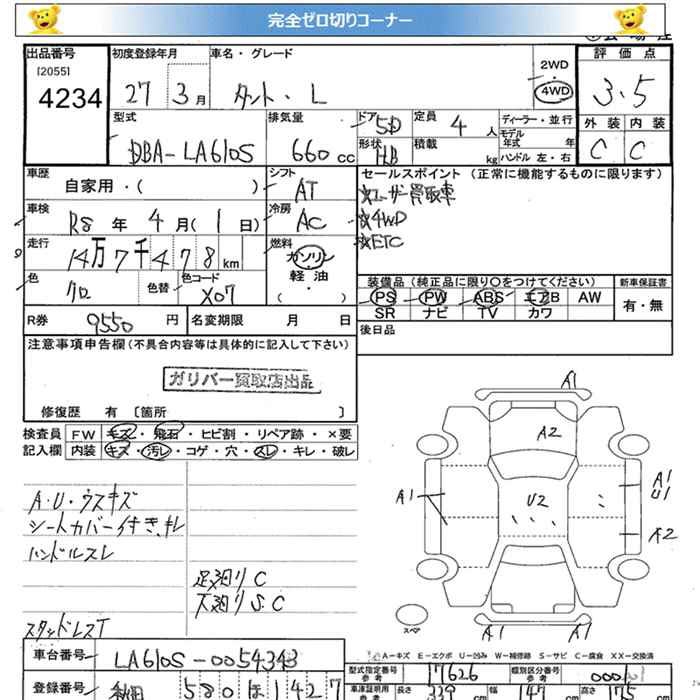 完全ゼロ切りコーナー
出品番号 [2055] 4234
初度登録年月 27 3月
車名・グレード タント・L
2WD 4WD
評価点 3.5
外装 内装
C C
型式 DBA-LA610S
排気量 660 cc
ドア 5D
形状 HB
定員 4人
積載 kg
ディーラー・並行
モデル年式 年
ハンドル 左・右
車歴 自家用・( )
シフト AT
セールスポイント(正常に機能するものに限ります)
☆ユーザー買取車
☆4WD
☆ETC
車検 R8年4月(1日)
冷房 AC
走行 14万7千478km
燃料 ガソリン 軽油 ( ・ )
色 クロ
色替
色コード X07
装備品(純正品に限り○をつけてください)
PS PW ABS エアB AW
SR ナビ TV カワ
新車保証書
有・無
R券 9550円
名変期限 月 日
後日品
注意事項申告欄(不具合内容等は具体的に記入して下さい)
ガリバー買取店出品
修復歴 有 [箇所 ]
検査員記入欄
FW キズ・飛石・ヒビ割・リペア跡・×要
内装 キズ・汚レ・コゲ・穴・スレ・キレ・破レ
A・U・ウスキズ
シートカバー付き、キレ
ハンドルスレ
足廻りC
下廻りS.C
スタッドレスT
A1
A2
A1
U2
A1
U1
A2
スペア
A1
A1
A-キズ E-エクボ U-凹み W-補修跡 S-サビ C-腐食 XX-交換済
車台番号 LA610S-0054343
登録番号 秋田 580 ほ 1427
型式指定番号 参考 17626
類別区分番号 参考
車庫証明用 参考
長さ 339 cm
幅 147 cm
高さ cm